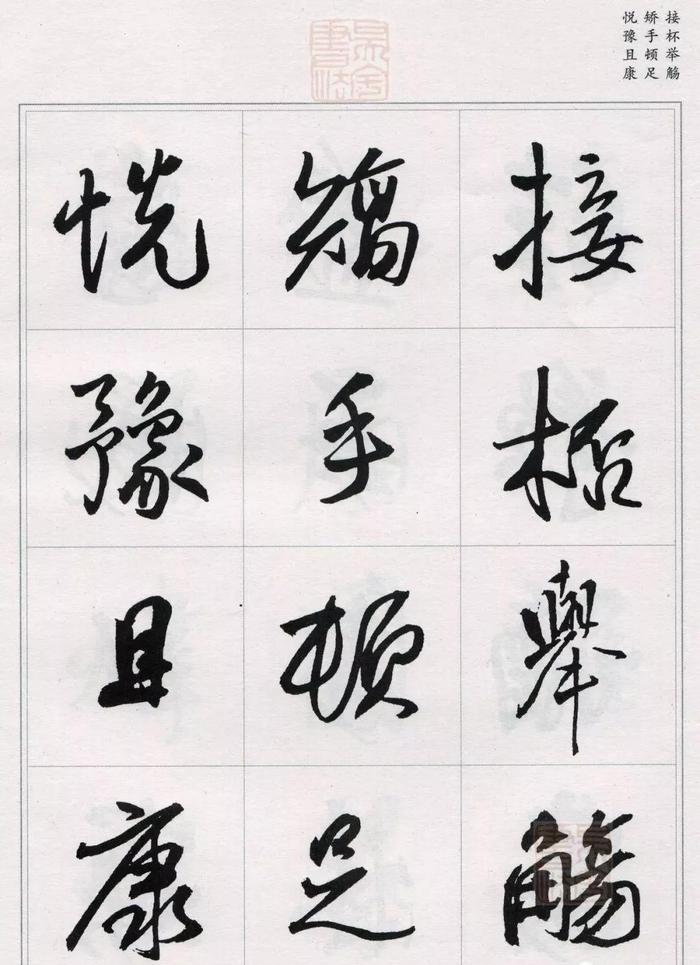 接杯举觞
矫手顿足
悦豫且康
接杯舉觴
矯手頓足
悦豫且康